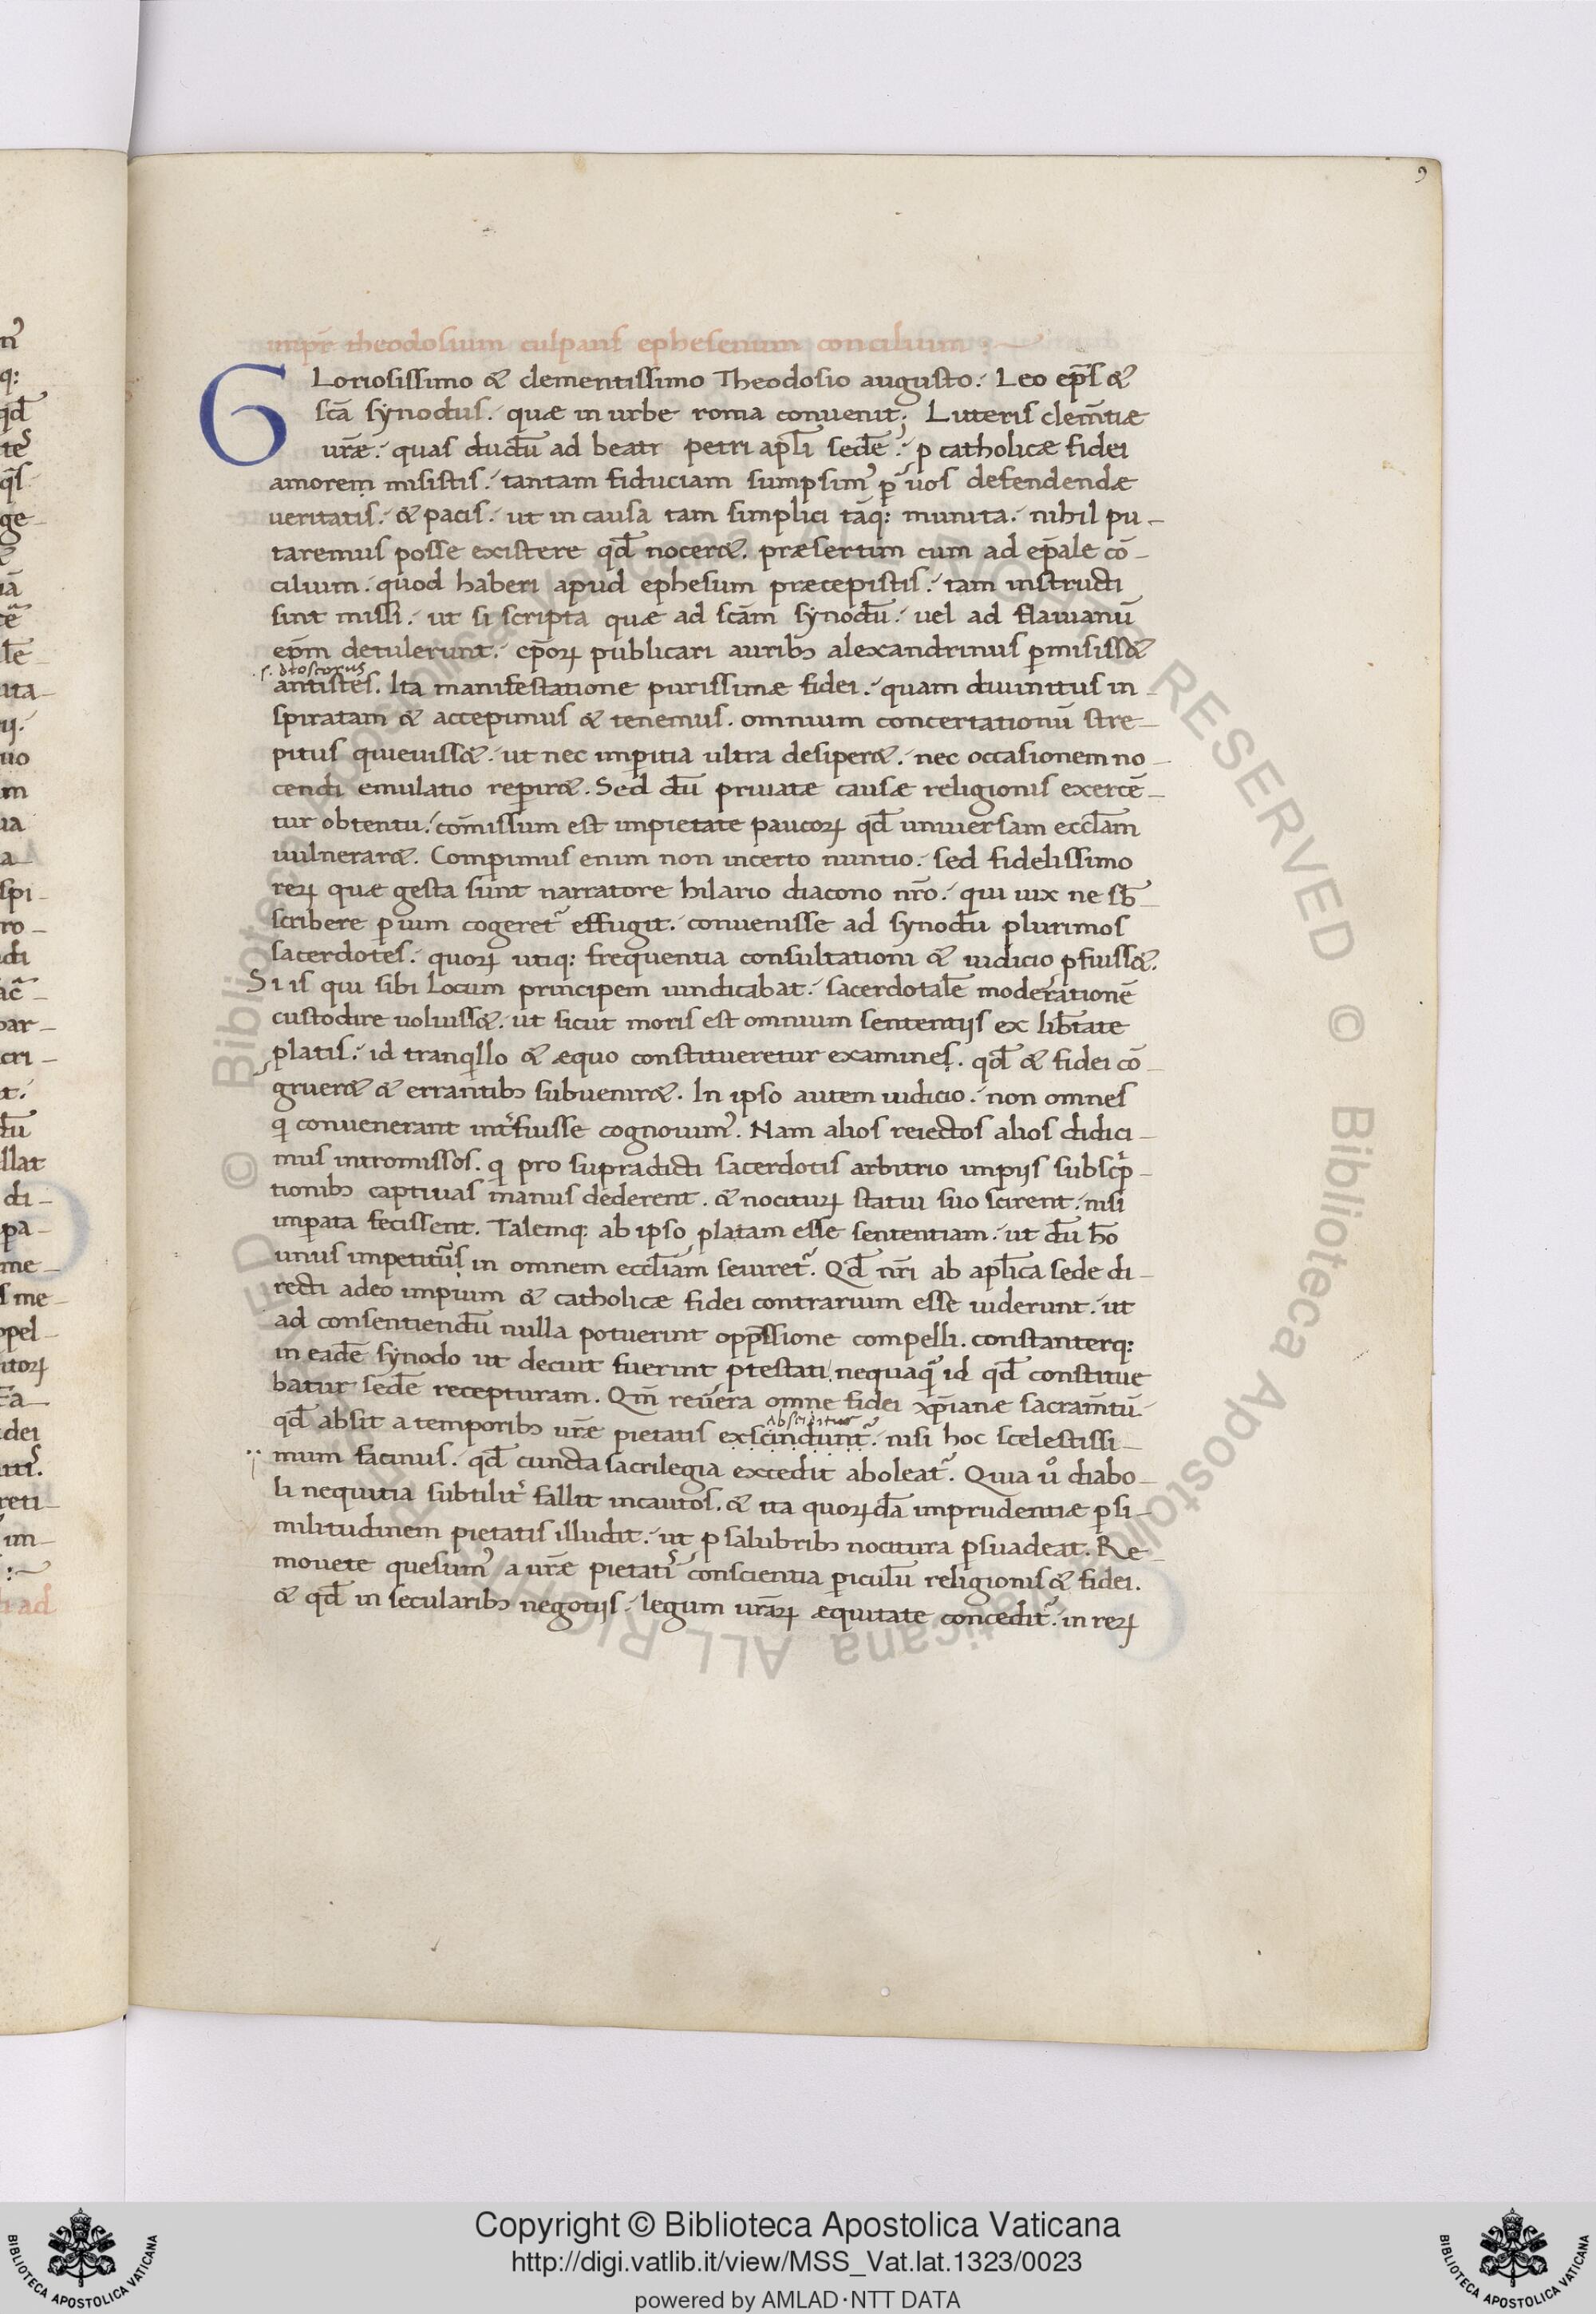 9
impr̄ theodosium culpans ephesenum concilium :~
GLoriosissimo & clementissimo Theodosio augusto. Leo ep̄s &
sc̄a synodus. quæ in urbe roma conuenit; Litteris clem̄tiæ
ur̄æ. quas dudū ad beati petri apl̄i sedē. p catholicæ fidei
amorem misistis. tantam fiduciam sumpsim᾽ p̱ uos defendendæ
ueritatis. & pacis. ut in causa tam simplici tāq: munita. nihil pu-
taremus posse existere qd̄ nocer&. præsertim cum ad ep̄ale cō-
cilium. quod haberi apud ephesum præcepistis. tam instructi
sint missi. ut si scripta quæ ad sc̄am synodū. uel ad flauianū
ep̄m detulerunt. ep̄oꝝ publicari auribꝫ alexandrinus ꝑmisiss&
.s. dioscorus
antistes. Ita manifestatione purissimæ fidei. quam diuinitus in-
spiratam & accepimus & tenemus. omnium concertationū stre-
pitus quieuiss&. ut nec impitia ultra desiper&. nec occasionem no-
cendi emulatio repir&. Sed dū priuatæ causæ religionis exercē-
tur obtentu. cōmissum est impietate paucoꝝ qd̄ uniuersam eccl̄am
uulnerar&. Compimus enim non incerto nuntio. sed fidelissimo
reꝝ quæ gesta sunt narratore hilario diacono nr̄o. qui uix ne sb̄-
scribere ꝑ uim cogeret᾽ effugit. conuenisse ad synodū plurimos
sacerdotes. quoꝝ utiq: frequentia consultationi & iudicio ꝓfuiss&.
Si is qui sibi locum principem uindicabat. sacerdotalē moderationē
custodire uoluiss&. ut sicut moris est omnium sententijs ex lib̄tate
ꝓlatis. id tranqillo & æquo constitueretur examines. qd̄ & fidei cō-
gruer& & errantibꝫ subuenir&. In ipso autem iudicio. non omnes
qi conuenerant int᾽fuisse cognouim᾽. Nam alios reiectos alios didici-
mus intromissos. qi pro supradicti sacerdotis arbitrio impijs subscp̄-
tionibꝫ captiuas manus dederent. & nocituꝝ statui suo scirent. nisi
impata fecissent. Talemq: ab ipso ꝓlatam esse sententiam. ut dū ho
unus impetitus in omnem eccl̄iam seuiret᾽. Qd̄ nr̄i ab apl̄ica sede di-
recti adeo impium & catholicæ fidei contrarium esse uiderunt. ut
ad consentiendū nulla potuerint opp̄ssione compelli. constanterq:
in eadē synodo ut decuit fuerint ptestati. nequaqā id qd̄ constitue
batur sedē recepturam. Qm̄ reuera omne fidei xp̄ianæ sacram̄tū.
abscinditur
qd̄ absit a temporibꝫ ur̄æ pietatis exscindunt᾽. nisi hoc scelestissi-
mum facinus. qd̄ cuncta sacrilegia excedit aboleat᾽. Quia u᷎ diabo-
li nequitia subtilit᾽ fallit incautos. & ita quoꝝdā imprudentiæ ꝑ si-
militudinem pietatis illudit. ut ꝓ salubribꝫ nocitura ꝑsuadeat. Re-
mouete quesum᾽ a ur̄æ pietatis conscientia ꝑiculū religionis & fidei.
& qd̄ in secularibꝫ negotijs. legum ur̄aꝝ æquitate concedit᾽. in reꝝ
Copyright © Biblioteca Apostolica Vaticana
http://digi.vatlib.it/view/MSS_Vat.lat.1323/0023
powered by AMLAD·NTT DATA